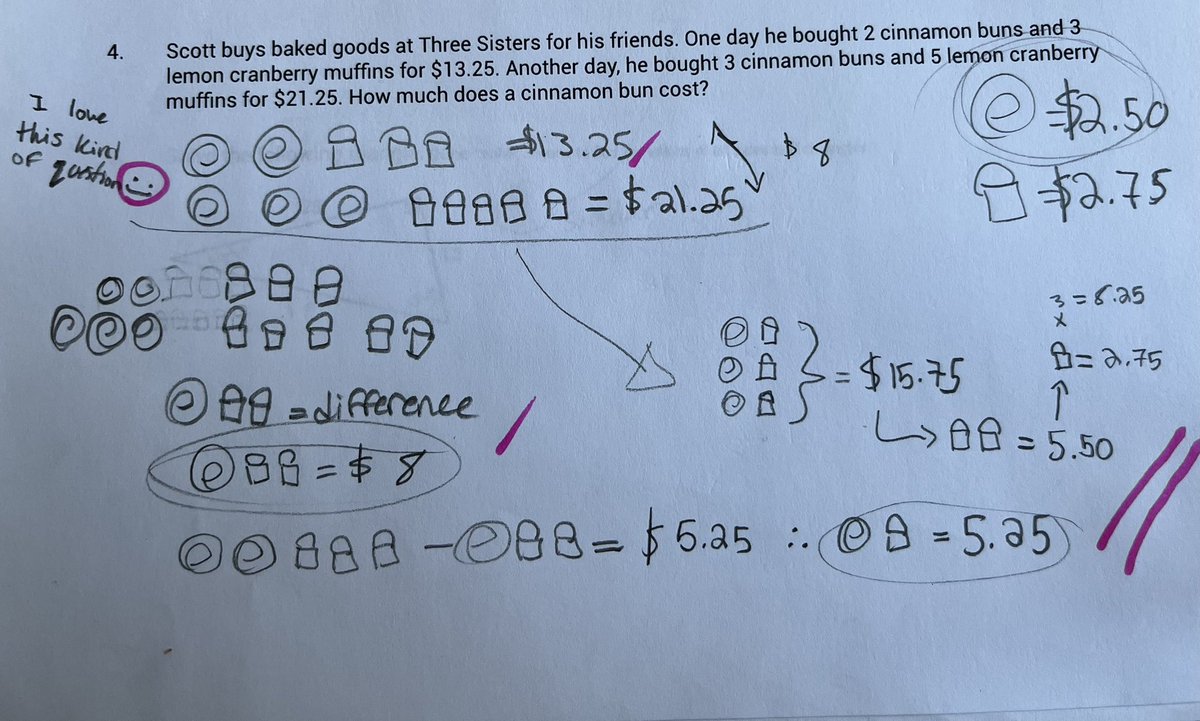 4. Scott buys baked goods at Three Sisters for his friends. One day he bought 2 cinnamon buns and 3
lemon cranberry muffins for $13.25. Another day, he bought 3 cinnamon buns and 5 lemon cranberry
muffins for $21.25. How much does a cinnamon bun cost?
I love
this kind
of qustion
=$13.25
$8
= $21.25
=$2.50
=$2.75
= difference
= $8
= $15.75
3 = 8.25
x
= 2.75
= 5.50
- = $5.25 ∴ = 5.25